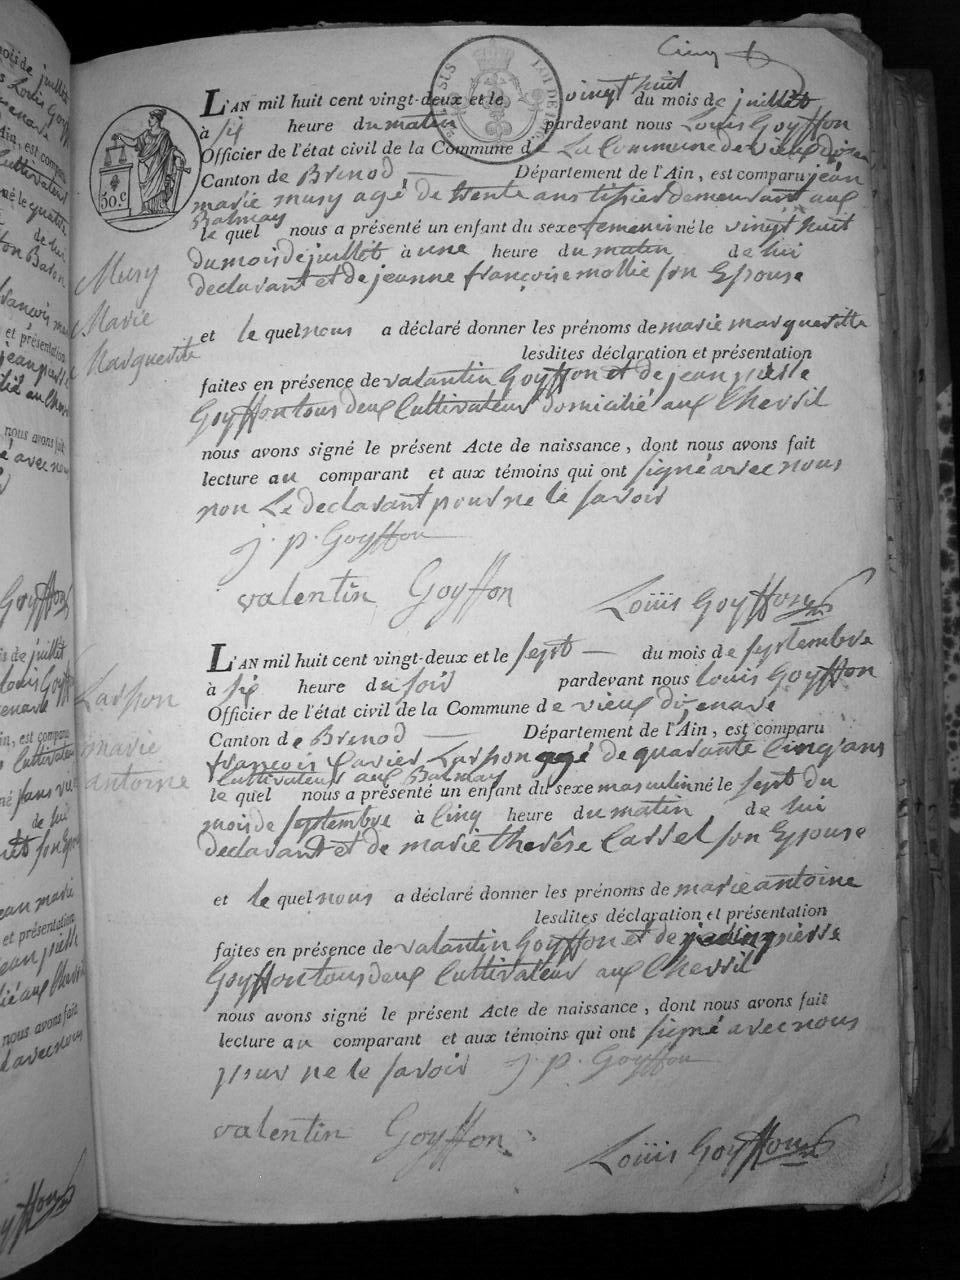 Cinq
L'AN mil huit cent vingt-deux et le vingt huit du mois de juillet
à six heure du matin pardevant nous Louis Goyffon
Officier de l'état civil de la Commune de La Commune de vieux dizenave
Canton de Brenod Département de l'Ain, est comparu jean
marie musy agé de trente ans tissier demeurant aux
Balmay
le quel nous a présenté un enfant du sexe femenin né le vingt huit
du mois de juillet à une heure du matin de lui
declarant et de jeanne françoise mollie son Epouse
Musy
Marie
Marguerite
et le quel nous a déclaré donner les prénoms de marie margueritte
lesdites déclaration et présentation
faites en présence de valantin Goyffon et de jean pierre
Goyffon tous deux Cultivateur domicilié aux Chevril
nous avons signé le présent Acte de naissance, dont nous avons fait
lecture au comparant et aux témoins qui ont signé avec nous
non Le declarant pour ne le savoir
j. p. Goyffon
valentin Goyffon
Louis Goyffon
L'AN mil huit cent vingt-deux et le sept du mois de septembre
à six heure du soir pardevant nous Louis Goyffon
Officier de l'état civil de la Commune de vieux dizenave
Canton de Brenod Département de l'Ain, est comparu
françois Xavier Larson agé de quarante Cinq ans
Cultivateur aux Balmay
le quel nous a présenté un enfant du sexe masculin né le sept du
mois de septembre à Cinq heure du matin de lui
declarant et de marie therése Carrel son Epouse
marie
antoine
et le quel nous a déclaré donner les prénoms de marie antoine
lesdites déclaration et présentation
faites en présence de valantin Goyffon et de pierre
Goyffon tous deux Cultivateur aux Chevril
nous avons signé le présent Acte de naissance, dont nous avons fait
lecture au comparant et aux témoins qui ont signé avec nous
pour ne le savoir j. p. Goyffon
valentin Goyffon
Louis Goyffon
50.c